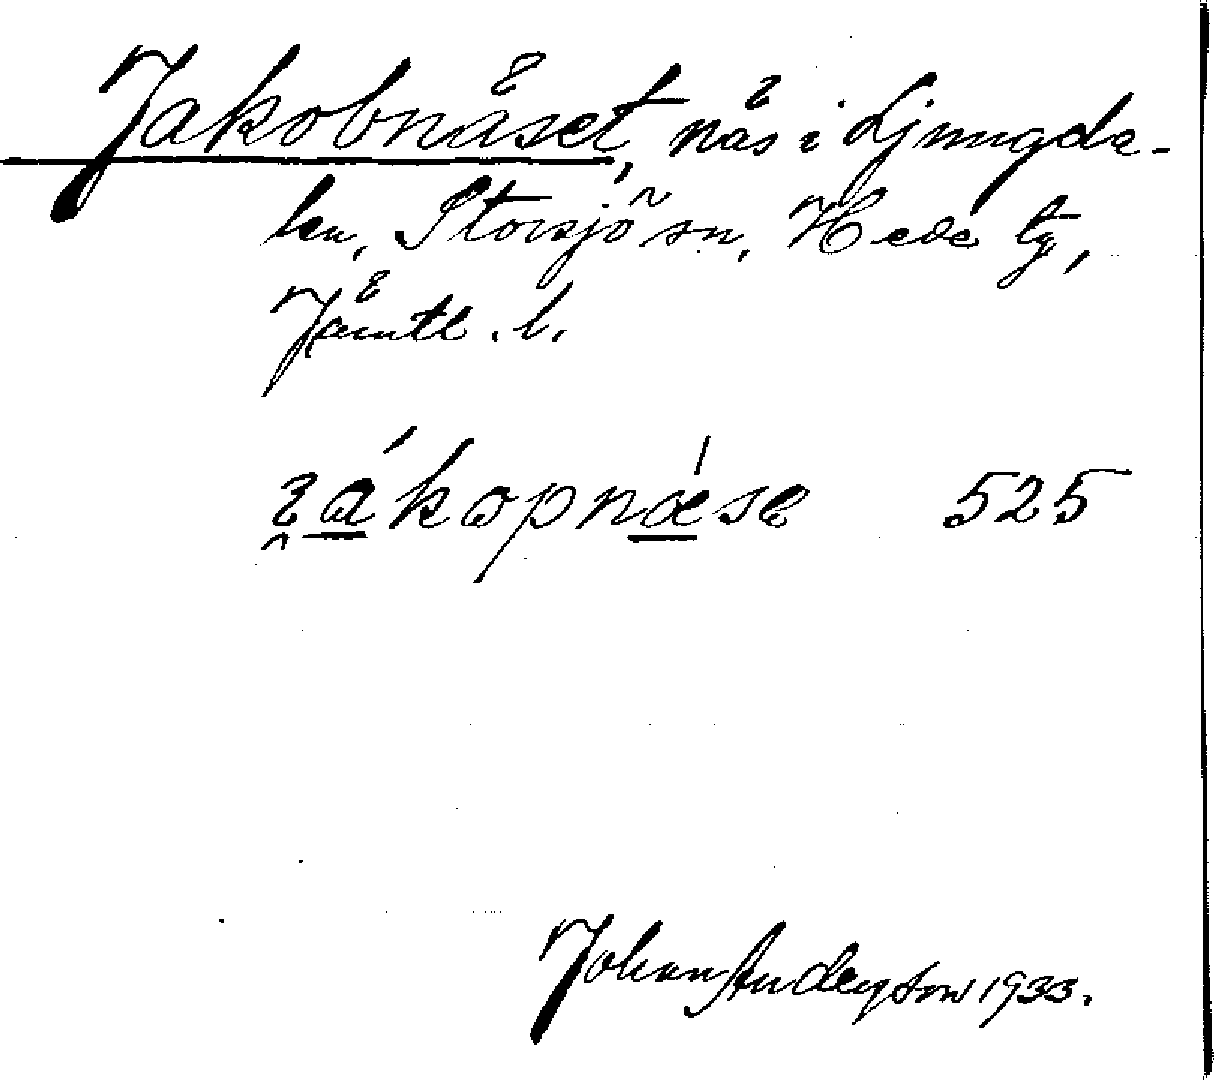 Jakobnäset, näs i Ljungda-
len, Storsjö sn, Hede tg,
Jämtl. l.
525
Johan Anderson 1933.